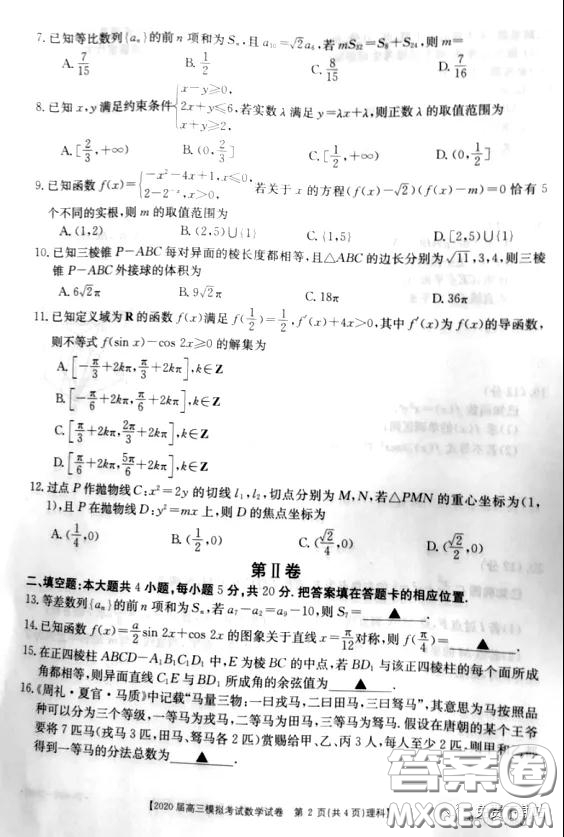 7. 已知等比数列{aₙ}的前 n 项和为 Sₙ,且 a₁₀=√2a₆,若 mS₃₂=S₈+S₂₄,则 m=
A. 7/15 B. 1/2 C. 8/15 D. 7/16
8. 已知 x,y 满足约束条件{x-y≥0, 2x+y≤6, x+y≥2.若实数 λ 满足 y=λx+λ,则正数 λ 的取值范围为
A. [2/3,+∞) B. (0,2/3] C. [1/2,+∞) D. (0,1/2]
9. 已知函数 f(x)={-x²-4x+1,x≤0, 2-2⁻ˣ,x>0, 若关于 x 的方程(f(x)-√2)(f(x)-m)=0 恰有 5
个不同的实根,则 m 的取值范围为
A. (1,2) B. (2,5)∪{1} C. {1,5} D. [2,5)∪{1}
10. 已知三棱锥 P-ABC 每对异面的棱长度都相等,且△ABC 的边长分别为√11,3,4,则三棱
锥 P-ABC 外接球的体积为
A. 6√2π B. 9√2π C. 18π D. 36π
11. 已知定义域为 R 的函数 f(x)满足 f(1/2)=1/2,f′(x)+4x>0,其中 f′(x)为 f(x)的导函数,
则不等式 f(sin x)-cos 2x≥0 的解集为
A. [-π/3+2kπ,π/3+2kπ],k∈Z
B. [-π/6+2kπ,π/6+2kπ],k∈Z
C. [π/3+2kπ,2π/3+2kπ],k∈Z
D. [π/6+2kπ,5π/6+2kπ],k∈Z
12. 过点 P 作抛物线 C:x²=2y 的切线 l₁,l₂,切点分别为 M,N,若△PMN 的重心坐标为(1,
1),且 P 在抛物线 D:y²=mx 上,则 D 的焦点坐标为
A. (1/4,0) B. (1/2,0) C. (√2/4,0) D. (√2/2,0)
第Ⅱ卷
二、填空题:本大题共 4 小题,每小题 5 分,共 20 分.把答案填在答题卡的相应位置.
13. 等差数列{aₙ}的前 n 项和为 Sₙ,若 a₇-a₂=a₉-10,则 S₇=▲.
14. 已知函数 f(x)=a/2 sin 2x+cos 2x 的图象关于直线 x=π/12对称,则 f(π/4)=▲.
15. 在正四棱柱 ABCD-A₁B₁C₁D₁ 中,E 为棱 BC 的中点,若 BD₁ 与该正四棱柱的每个面所成
角都相等,则异面直线 C₁E 与 BD₁ 所成角的余弦值为▲.
16. 《周礼·夏官·马质》中记载“马量三物:一曰戎马,二曰田马,三曰驽马”,其意思为马按照品
种可以分为三个等级,一等马为戎马,二等马为田马,三等马为驽马.假设在唐朝的某个王爷
要将 7 匹马(戎马 3 匹,田马、驽马各 2 匹)赏赐给甲、乙、丙 3 人,每人至少 2 匹,则甲和
得到一等马的分法总数为▲.
【2020 届高三模拟考试数学试卷 第 2 页(共 4 页)理科】